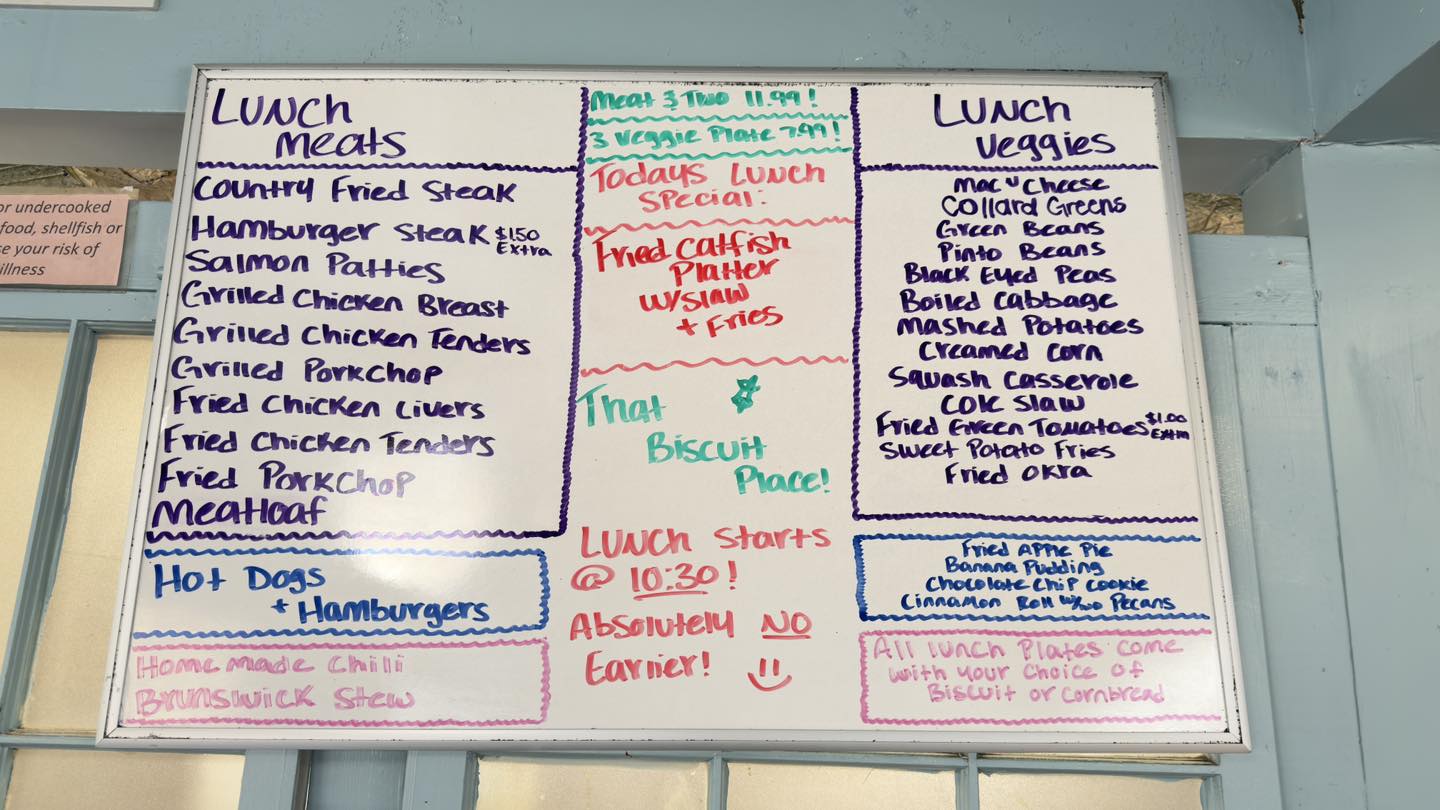 or undercooked
food, shellfish or
se your risk of
illness
Lunch
Meats
Country Fried Steak
Hamburger Steak $1.50
Extra
Salmon Patties
Grilled Chicken Breast
Grilled Chicken Tenders
Grilled Porkchop
Fried Chicken Livers
Fried Chicken Tenders
Fried Porkchop
Meatloaf
Hot Dogs
+ Hamburgers
Homemade Chili
Brunswick Stew
Meat & Two 11.99!
3 Veggie Plate 7.99!
Todays Lunch
Special:
Fried Catfish
Platter
w/Slaw
+ Fries
That
Biscuit
Place!
Lunch Starts
@ 10:30!
Absolutely NO
Earlier!
Lunch
Veggies
Mac n Cheese
Collard Greens
Green Beans
Pinto Beans
Black Eyed Peas
Boiled Cabbage
Mashed Potatoes
Creamed Corn
Squash Casserole
Cole Slaw
Fried Green Tomatoes $1.00
Extra
Sweet Potato Fries
Fried Okra
Fried Apple Pie
Banana Pudding
Chocolate Chip Cookie
Cinnamon Roll w/wo Pecans
All lunch Plates come
with your choice of
Biscuit or Cornbread